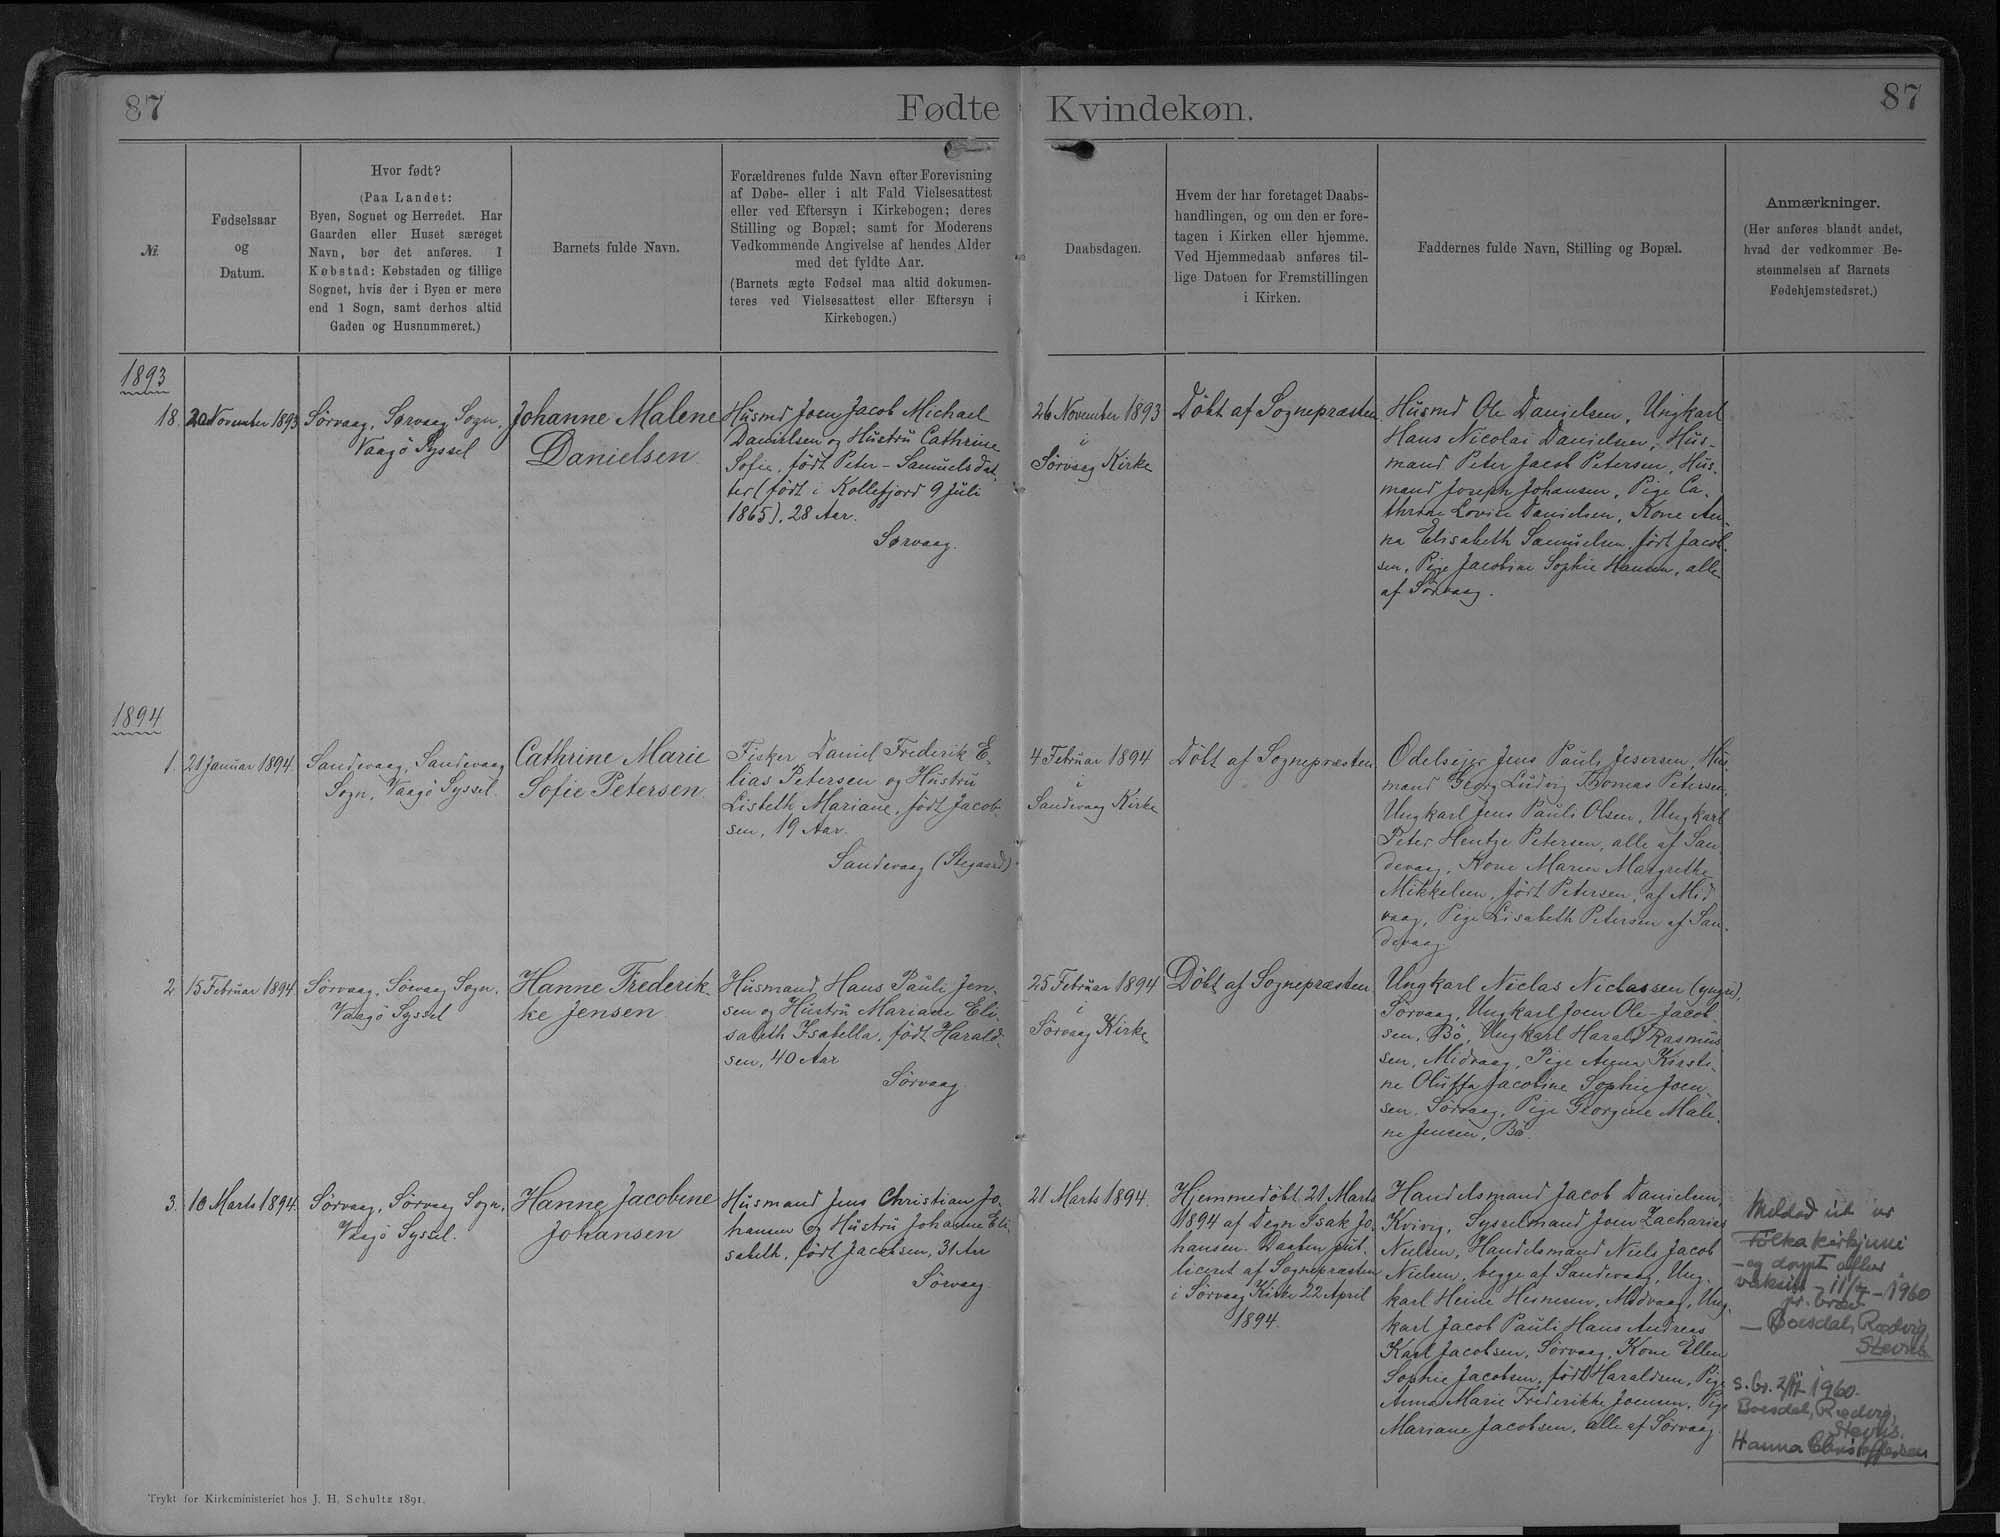 87
Fødte
Kvindekøn.
87
№
Fødselsaar
og
Datum.
Hvor født?
(Paa Landet:
Byen, Sognet og Herredet. Har
Gaarden eller Huset særeget
Navn, bør det anføres. I
Købstad: Købstaden og tillige
Sognet, hvis der i Byen er mere
end 1 Sogn, samt derhos altid
Gaden og Husnummeret.)
Barnets fulde Navn.
Forældrenes fulde Navn efter Forevisning
af Døbe- eller i alt Fald Vielsesattest
eller ved Eftersyn i Kirkebogen; deres
Stilling og Bopæl; samt for Moderens
Vedkommende Angivelse af hendes Alder
med det fyldte Aar.
(Barnets ægte Fødsel maa altid dokumen-
teres ved Vielsesattest eller Eftersyn i
Kirkebogen.)
Daabsdagen.
Hvem der har foretaget Daabs-
handlingen, og om den er fore-
tagen i Kirken eller hjemme.
Ved Hjemmedaab anføres til-
lige Datoen for Fremstillingen
i Kirken.
Faddernes fulde Navn, Stilling og Bopæl.
Anmærkninger.
(Her anføres blandt andet,
hvad der vedkommer Be-
stemmelsen af Barnets
Fødehjemstedsret.)
1893
18.
20 November 1893
Sörvaag, Sörvaag Sogn,
Vaagö Syssel
Johanne Malene
Danielsen
Husmd Joen Jacob Michael
Danielsen og Hustru Cathrine
Sofie, född Peter-Samuelsdat-
ter (född i Kollefjord 9 Juli
1865), 28 Aar.
Sørvaag.
26 November 1893
i
Sörvaag Kirke
Döbt af Sognepræsten
Husmd Ole Danielsen, Ungkarl
Hans Nicolai Danielsen, Hus-
mand Peter Jacob Petersen, Hus-
mand Joseph Johansen, Pige Ca-
thrine Lovise Danielsen, Kone An-
na Elisabeth Samuelsen, født Jacob-
sen, Pige Jacobine Sophie Hansen, alle
af Sörvaag.
1894
1.
21 Januar 1894
Sandevaag, Sandevaag
Sogn, Vaagö Syssel.
Cathrine Marie
Sofie Petersen.
Fisker Daniel Frederik E-
lias Petersen og Hustru
Lisbeth Mariane, født Jacob-
sen, 19 Aar.
Sandevaag (Stegaard)
4 Februar 1894
i
Sandevaag Kirke
Döbt af Sognepræsten
Odelsejer Jens Pauli Jesersen, Hus-
mand Georg Ludvig Thomas Petersen,
Ungkarl Jens Pauli Olsen, Ungkarl
Peter Hentze Petersen, alle af San-
devaag, Kone Maren Margrethe
Mikkelsen, født Petersen, af Mid-
vaag, Pige Lisabeth Petersen af San-
devaag
2
15 Februar 1894
Sörvaag, Sörvaag Sogn,
Vaagö Syssel
Hanne Frederik-
ke Jensen
Husmand Hans Pauli Jen-
sen og Hustru Mariane Eli-
sabeth Isabella, født Harald-
sen, 40 Aar
Sörvaag.
25 Februar 1894
i
Sörvaag Kirke
Döbt af Sognepræsten
Ungkarl Niclas Niclassen (yngre),
Sörvaag, Ungkarl Joen Ole-Jacob-
sen, Bö, Ungkarl Harald Rasmus-
sen, Midvaag, Pige Anna Kirsti-
ne Oluffa Jacobine Sophie Joen-
sen, Sörvaag, Pige Georgine Male-
ne Jensen, Bö.
3.
10 Marts 1894
Sörvaag, Sörvaag Sogn,
Vaagö Syssel.
Hanne Jacobine
Johansen
Husmand Jens Christian Jo-
hansen og Hustru Johanne Eli-
sabeth, født Jacobsen, 31 Aar
Sörvaag.
21 Marts 1894.
Hjemmedöbt 21 Marts
1894 af Degn Isak Jo-
hansen. Daaben pub-
liceret af Sognepræsten
i Sörvaag Kirke 22 April
1894.
Handelsmand Jacob Danielsen,
Kvivig, Sysselmand Joen Zacharias
Nielsen, Handelsmand Niels Jacob
Nielsen, begge af Sandevaag, Ung-
karl Heine Heinesen, Midvaag, Ung-
karl Jacob Pauli Hans Andreas
Karl Jacobsen, Sörvaag, Kone Ellen
Sophie Jacobsen, født Haraldsen, Pige
Anna Marie Frederikke Joensen, Pige
Mariane Jacobsen, alle af Sörvaag.
Meldað út úr
Fólkakirkjuni
- og doypt aftur
vaksin - 11/4 - 1960
fr. bræv
- Boesdal, Rødvig,
Stevns
s. br. 2/4 1960.
Boesdal, Rødvig,
Stevns.
Hanna Christoffersen
Trykt for Kirkeministeriet hos J. H. Schultz 1891.